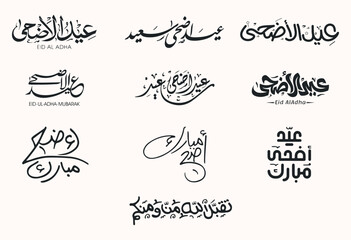 عيد الأضحى
EID AL ADHA
عيد أضحى سعيد
عيد الأضحى
عيد الأضحى
EID UL ADHA MUBARAK
عيد أضحى سعيد
عيد الأضحى
Eid AlAdha
أضحى
مبارك
أضحى
مبارك
عيد
أضحى
مبارك
تقبل الله منا ومنكم